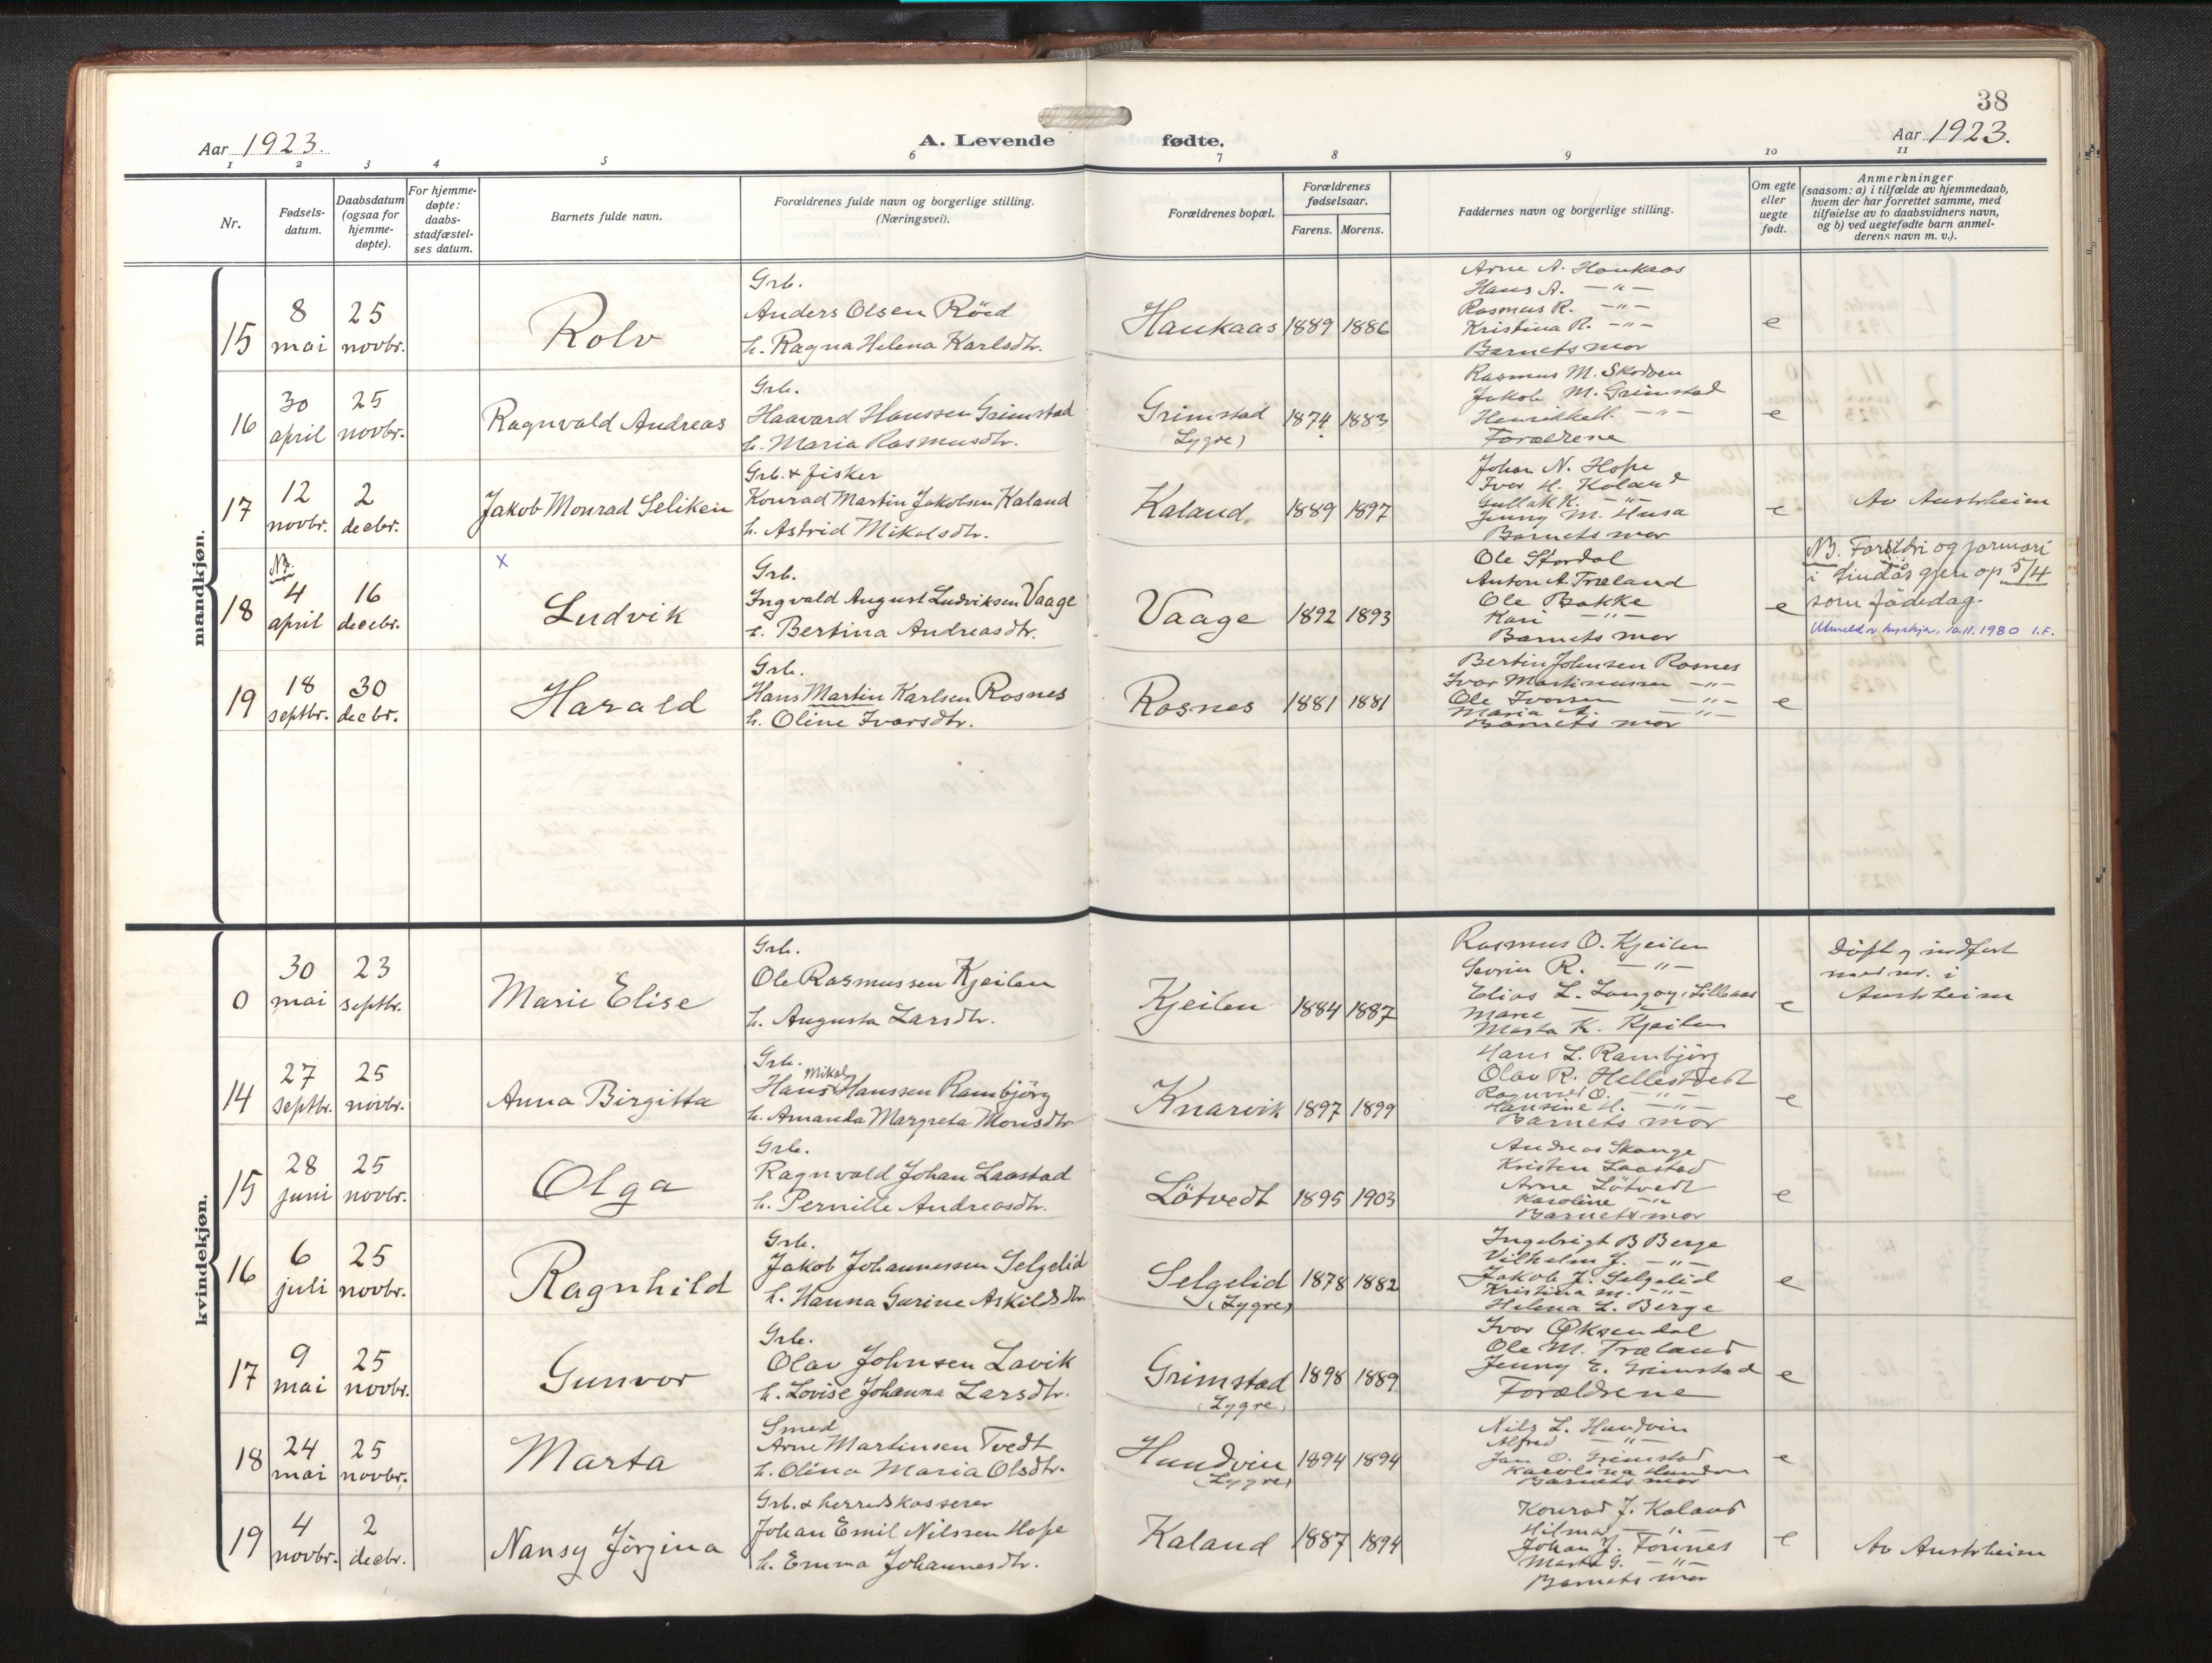 38
Aar 1923.
A. Levende fødte.
Aar 1923.
1 2 3 4 5 6 7 8 9 10 11
Nr.
Fødsels-
datum.
Daabsdatum
(ogsaa for
hjemme-
døpte).
For hjemme-
døpte:
daabs-
stadfæstel-
ses datum.
Barnets fulde navn.
Forældrenes fulde navn og borgerlige stilling.
(Næringsvei).
Forældrenes bopæl.
Forældrenes
fødselsaar.
Farens. Morens.
Faddernes navn og borgerlige stilling.
Om egte
eller
uegte
født.
Anmerkninger
(saasom: a) i tilfælde av hjemmedaab,
hvem der har forrettet samme, med
tilføielse av to daabsvidners navn,
og b) ved uegtefødte barn anmel-
derens navn m. v.).
mandkjøn.
15
8
mai
25
novbr.
Rolv
Grb.
Anders Olsen Röed
h. Ragna Helena Karlsdtr.
Haukaas
1889 1886
Arne A. Haukaas
Hans A. -"-
Rasmus R. -"-
Kristina R. -"-
Barnets mor
e
16
30
april
25
novbr.
Ragnvald Andreas
Grb.
Haavard Hanssen Grimstad
h. Maria Rasmusdtr.
Grimstad
(Lygre)
1874 1883
Rasmus M. Skodven
Jakob M. Grimstad
-"-
Forældrene
e
17
12
novbr.
2
decbr.
Jakob Monrad Seliken
Grb. & fisker
Konrad Martin Jakobsen Kaland
h. Astrid Mikalsdtr.
Kaland
1889 1897
Johan N. Hope
Ivar H. Kaland
Gullak K. -"-
Jenny M. Husa
Barnets mor
e
Av Austrheim
18
NB.
4
april
16
decbr.
x
Ludvik
Grb.
Ingvald August Ludviksen Vaage
h. Bertina Andreasdtr.
Vaage
1892 1893
Ole Stordal
Anton A. Træland
Ole Bakke
Kari -"-
Barnets mor
e
NB. Foreldri og formari
i Lindås gjeve op 5/4
som födedag.
Utmeld av kyrkja, 10.11.1980 I.F.
19
18
septbr.
30
decbr.
Harald
Grb.
Hans Martin Karlsen Rosnes
h. Oline Ivarsdtr.
Rosnes
1881 1881
Bertin Johnsen Rosnes
Ivar Martinussen -"-
Ole Ivarsen -"-
Maria A. -"-
Barnets mor
e
kvindekjøn.
0
30
mai
23
septbr.
Marie Elise
Grb.
Ole Rasmussen Kjeilen
h. Augusta Larsdtr.
Kjeilen
1884 1887
Rasmus O. Kjeilen
Sevrin R. -"-
Elias L. Langøy, Lilleaas
Marie
Marta K. Kjeilen
e
Döpt og indfört
med nr. i
Austrheim
14
27
septbr.
25
novbr.
Anna Birgitta
Grb.
Hans Mikal Hanssen Rambjörg
h. Amanda Margreta Monsdtr
Knarvik
1897 1899
Hans L. Rambjörg
Olav R. Hellestvedt
Ragnvald O. -"-
Hansine H. -"-
Barnets mor
e
15
28
juni
25
novbr.
Olga
Grb.
Ragnvald Johan Laastad
h. Pernille Andreasdtr.
Lötvedt
1895 1903
Andreas Skauge
Kristen Laastad
Arne Lötvedt
Karoline -"-
Barnets mor
e
16
6
juli
25
novbr.
Ragnhild
Grb.
Jakob Johannessen Selgelid
h. Hanna Gurine Askildsdtr.
Selgelid
(Lygre)
1878 1882
Ingebrigt B Berge
Vilhelm J. -"-
Jakob J. Selgelid
Kristina M. -"-
Helena L. Berge
e
17
9
mai
25
novbr.
Gunvor
Grb.
Olav Johnsen Lavik
h. Lovise Johanna Larsdtr.
Grimstad
(Lygre)
1898 1889
Ivar Øksendal
Ole M. Træland
Jenny E. Grimstad
Forældrene
e
18
24
mai
25
novbr.
Marta
Smed
Arne Martinsen Tvedt
h. Olina Maria Olsdtr.
Hundvin
(Lygre)
1894 1894
Nils L. Hundvin
Alfred -"-
Jan O. Grimstad
Karolina Hundvin
Barnets mor
e
19
4
novbr.
2
decbr.
Nansy Jörgina
Grb. & herredskasserer
Johan Emil Nilssen Hope
h. Emma Johannesdtr.
Kaland
1887 1894
Konrad J. Kaland
Hilmar -"-
Johan J. Fonnes
Marta G. -"-
Barnets mor
e
Av Austrheim